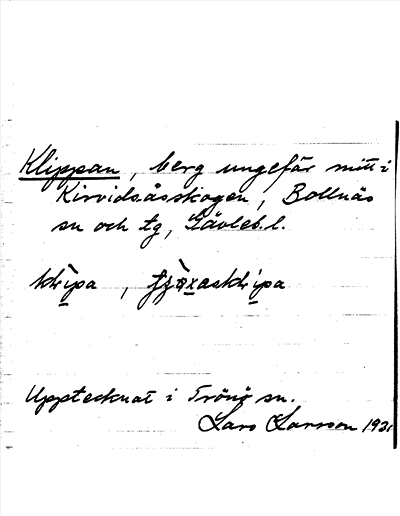 Klippan, berg ungefär mitt i
Kirvidsåsskogen, Bollnäs
sn och tg, Gävleb. l.
Upptecknat i Trönö sn.
Lars Larsson 1931